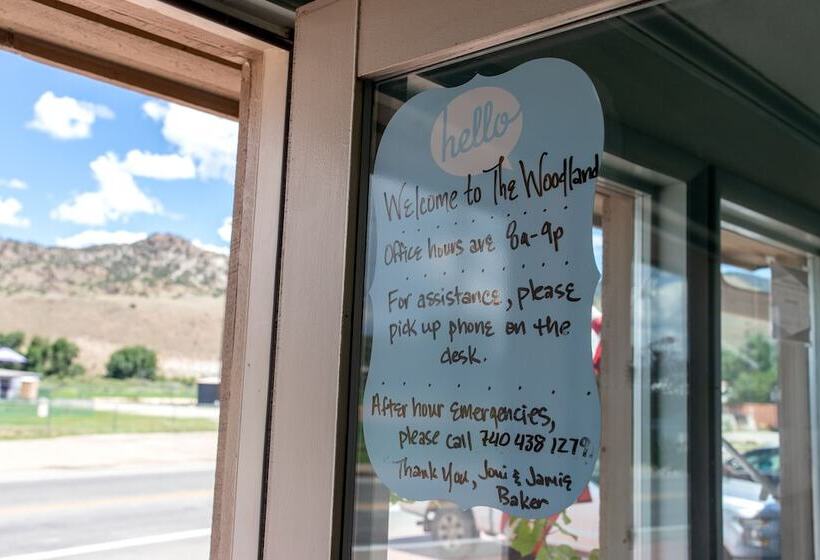 hello
Welcome to The Woodland
Office hours are 8a-9p
For assistance, please
pick up phone on the
desk.
After hour emergencies,
please call 740 438 1279.
Thank You, Joni & Jamie
Baker